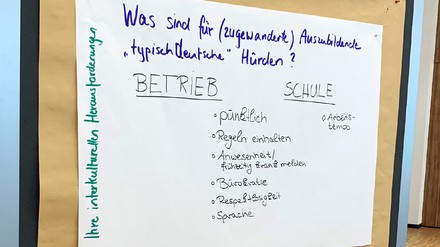 Ihre interkulturellen Herausforderungen
Was sind für (zugewanderte) Auszubildende
„typisch Deutsche" Hürden?
BETRIEB
SCHULE
pünktlich
Regeln einhalten
Anwesenheit/
frühzeitig krank melden
Bürokratie
Sprache
Arbeits-
tempo